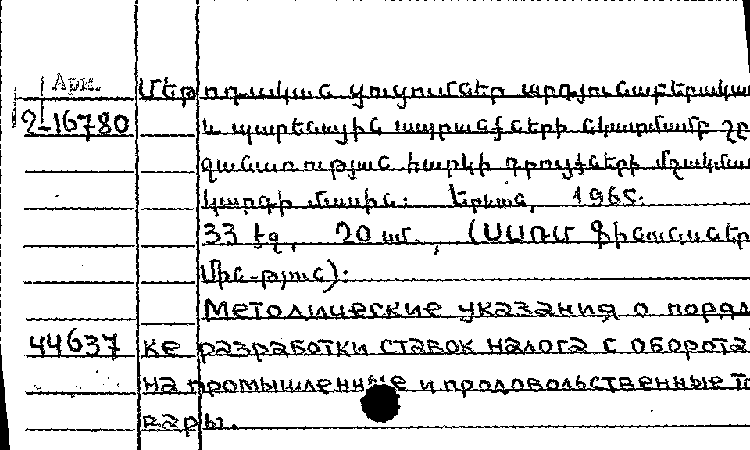 Арм.
Մեթոդական ցուցումներ արդյունաբերական
2-16780
և պարենային ապրանքների նկատմամբ շր
ջանառության հարկի դրույքների մշակման
կարգի մասին: Երևան, 1965.
33 էջ, 20 սմ., (ՍՍՌՄ Ֆինանսներ
Մին-թյուն):
Методические указания о поряд
44637 ке разработки ставок налога с оборота
на промышленные и продовольственные то
вары.